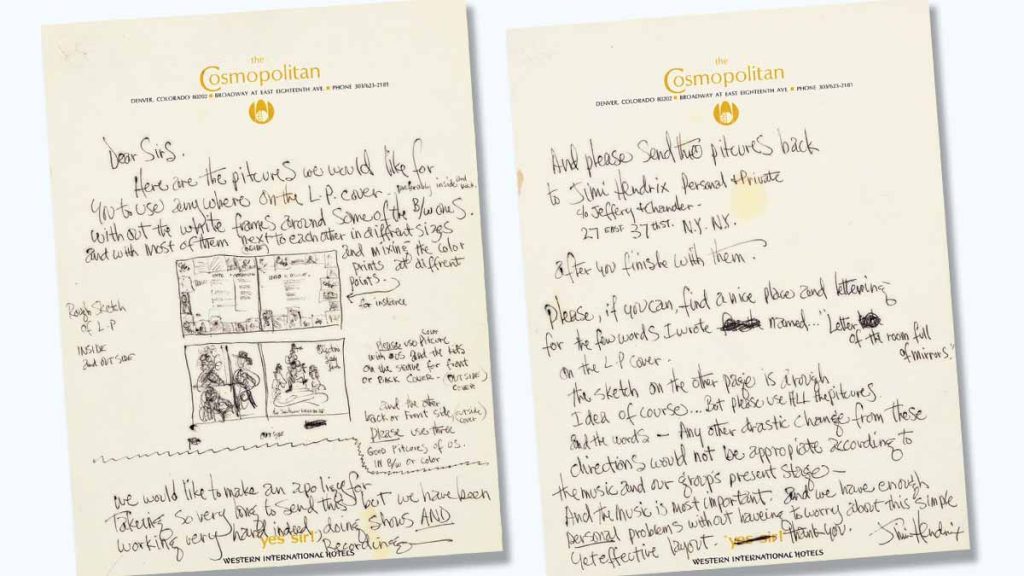 the
Cosmopolitan
DENVER, COLORADO 80202 • BROADWAY AT EAST EIGHTEENTH AVE. • PHONE 303/623-2181
Dear Sirs.
Here are the pitcures we would like for
you to use anywhere on the L.P. cover. preferably inside and back.
with out the white frames around some of the B/w ones.
and with most of them next to each other in diffrent sizes
(BESIDE)
and mixing the color
prints at diffrent
points.
for instance
Rough Sketch
of L.P
INSIDE
and OUTSIDE
Please use color Pitcure
with us and the kids
on the statue for front
or Back COVER - (OUTSIDE)
COVER
and the other
back or Front side (outside cover)
Please use three
Good Pitcures of us.
IN B/w or Color
we would like to make an apolige for
Takeing so very long to send this but we have been
working very hard indeed, doing shows AND
Recording
yes sir!
WESTERN INTERNATIONAL HOTELS
the
Cosmopolitan
DENVER, COLORADO 80202 • BROADWAY AT EAST EIGHTEENTH AVE. • PHONE 303/623-2181
And please send the pitcures back
to Jimi Hendrix Personal & Private
c/o Jeffery & Chandler -
27 EAST 37th ST. N.Y. N.Y.
after you finishe with them.
Please, if you can, find a nice place and lettering
for the few words I wrote named... "Letter
of the room full
of mirrors"
on the L-P cover.
the sketch on the other page is a rough
Idea of course... But please use ALL the pitcures
and the words - Any other drastic change from these
directions would not be appropriate according to
the music and our group's present stage -
And the music is most important. and we have enough
personal problems without haveing to worry about this simple
yet effective layout.
thank you.
Jimi Hendrix
yes sir!
WESTERN INTERNATIONAL HOTELS